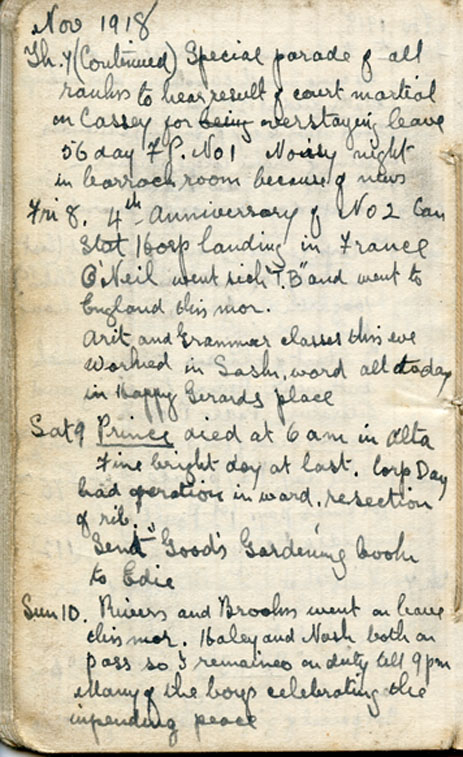 Nov 1918
Th. 7 (Continued) Special parade of all
ranks to hear result of court martial
on Cassey for being overstaying leave
56 day F.P. No 1 Noisy night
in barrack room because of news
Fri 8. 4th Anniversary of No 2 Can
Stat Hosp landing in France
O'Neil went sick "T.B" and went to
England this mor.
Arit and Grammar classes this eve
Worked in Sash. word all today
in Happy Gerards place
Sat 9 Prince died at 6 am in Alta
Fine bright day at last. Corp Day
had operation in ward, resection
of rib.
Send "Good's Gardening" book
to Edie
Sun 10. Rivers and Brooks went on leave
this mor. Haley and Nash both on
pass so I remained on duty till 9 pm
Many of the boys celebrating the
inpending peace